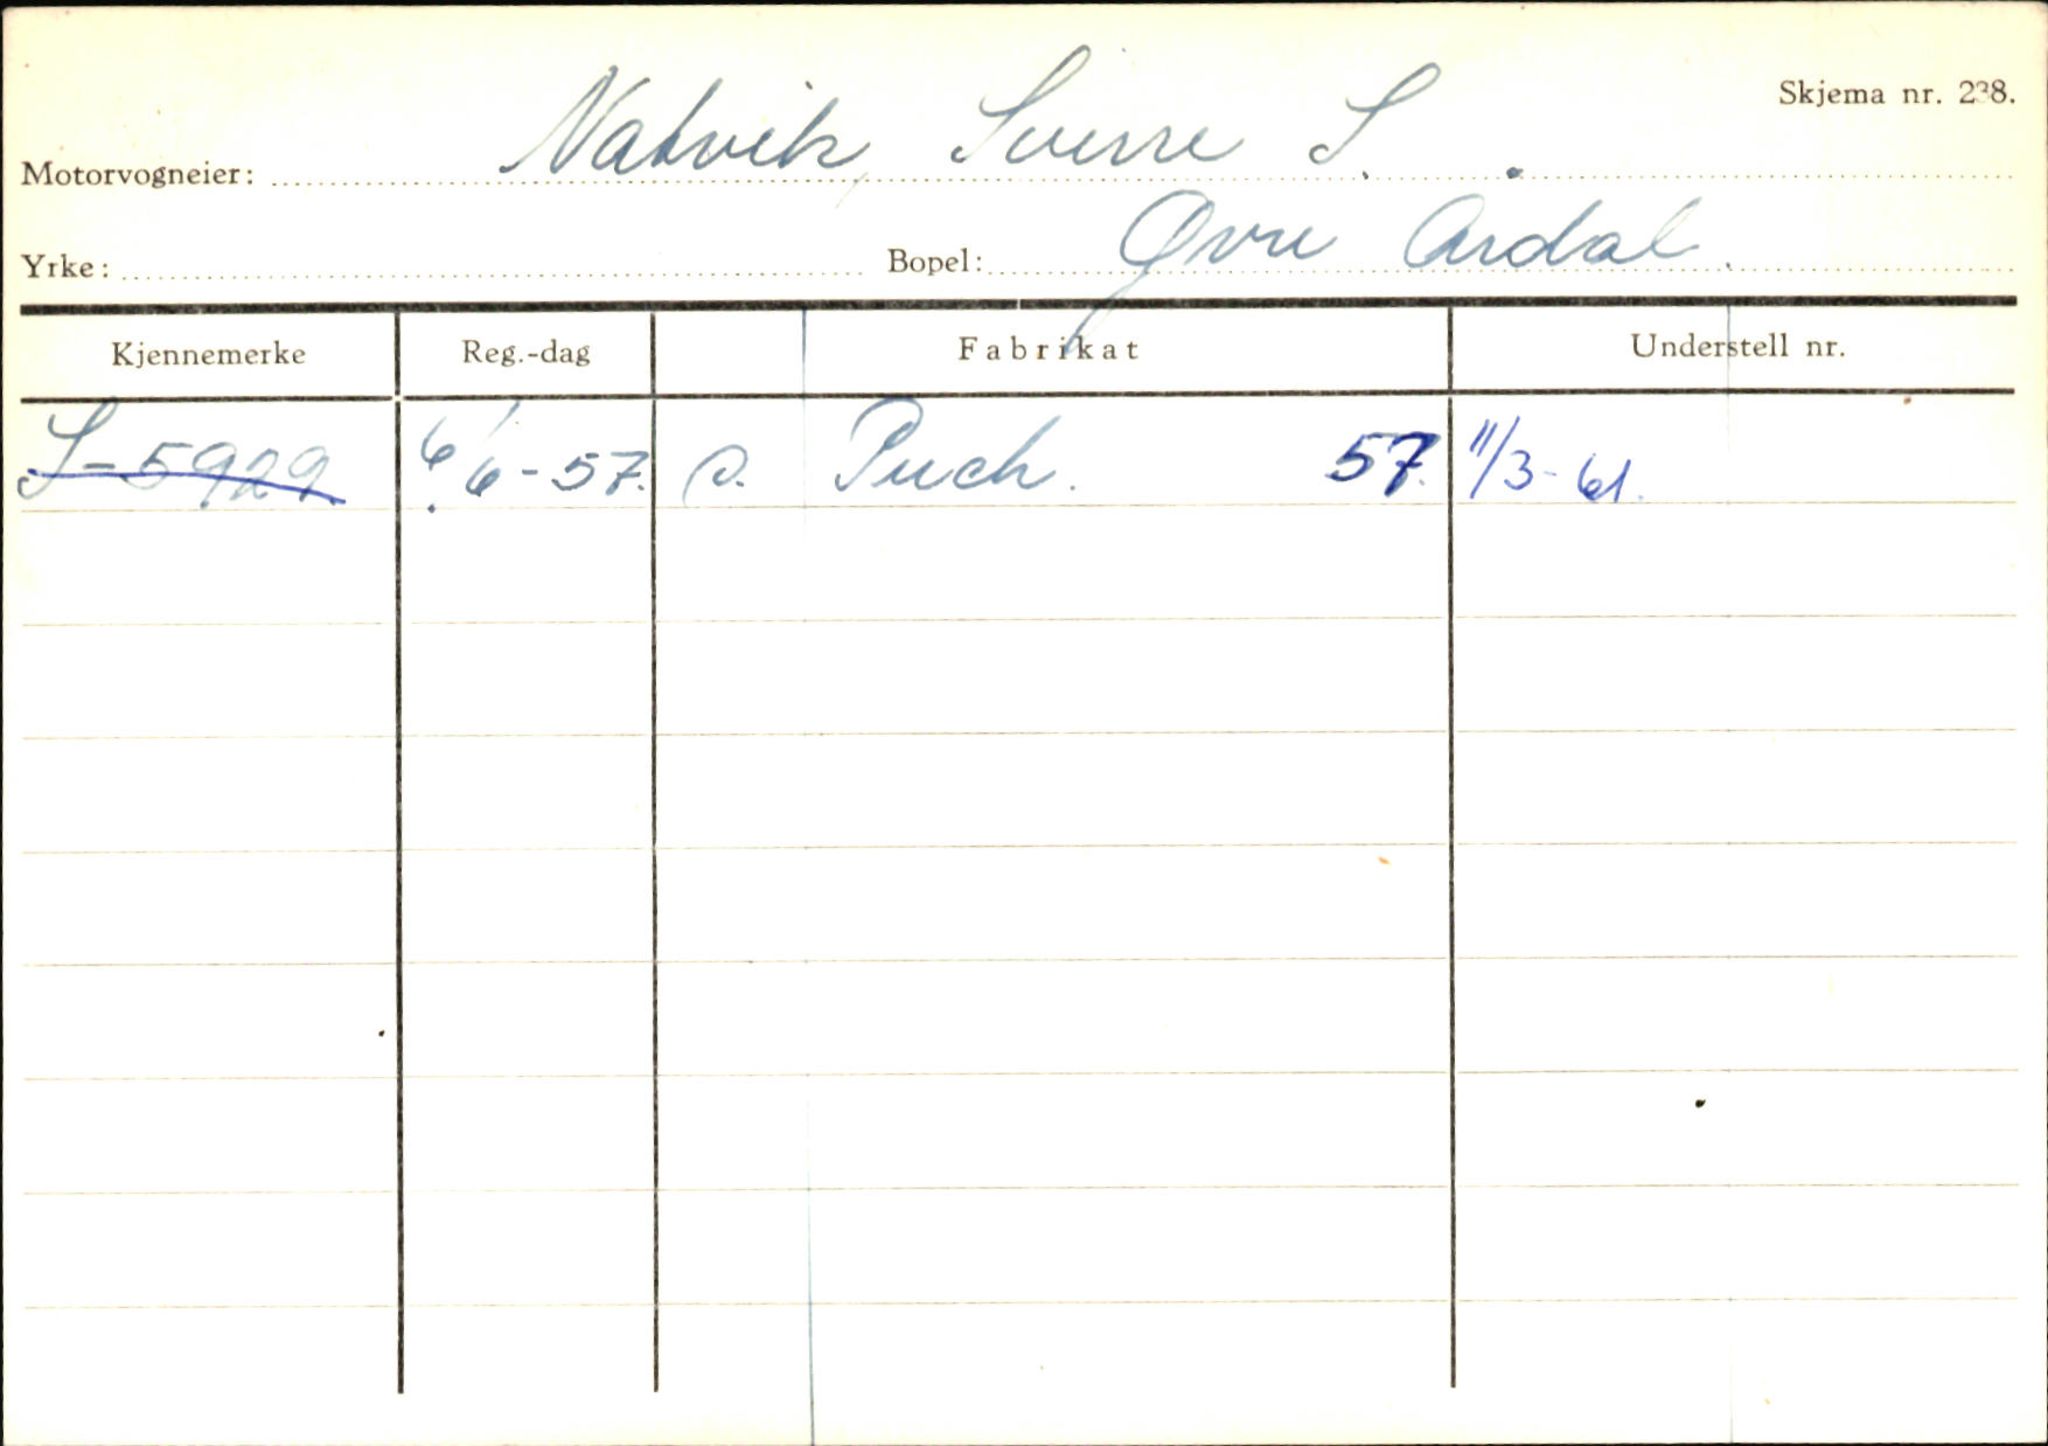 Skjema nr. 238.
Motorvogneier: Natvik, Sverre S.
Yrke: Bopel: Øvre Årdal.
Kjennemerke Reg.-dag Fabrikat Understell nr.
S-5929 6/6-57. Puch. 57. 11/3-61.